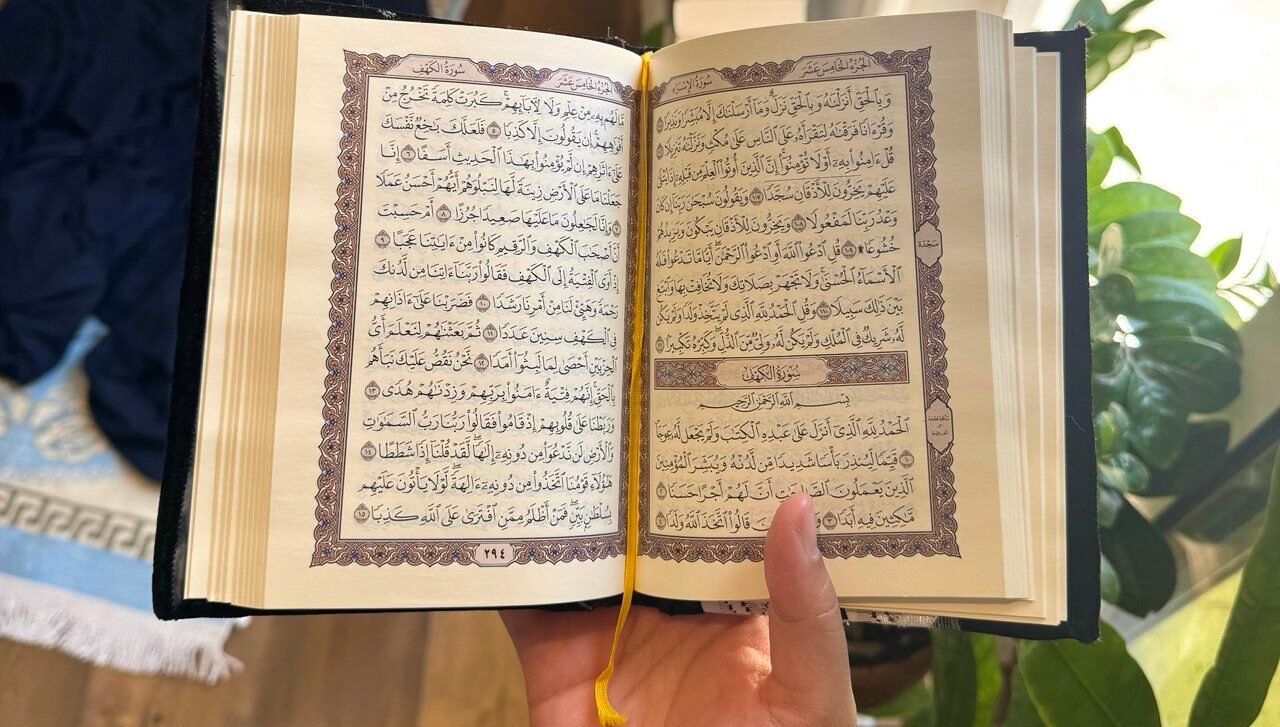 الجُزْءُ الخَامِسَ عَشَرَ
سُورَةُ الإِسْرَاءِ
وَبِٱلْحَقِّ أَنزَلْنَٰهُ وَبِٱلْحَقِّ نَزَلَ ۗ وَمَآ أَرْسَلْنَٰكَ إِلَّا مُبَشِّرًا وَنَذِيرًا ١٠٥
وَقُرْءَانًا فَرَقْنَٰهُ لِتَقْرَأَهُۥ عَلَى ٱلنَّاسِ عَلَىٰ مُكْثٍ وَنَزَّلْنَٰهُ تَنزِيلًا ١٠٦
قُلْ ءَامِنُوا۟ بِهِۦٓ أَوْ لَا تُؤْمِنُوٓا۟ ۚ إِنَّ ٱلَّذِينَ أُوتُوا۟ ٱلْعِلْمَ مِن قَبْلِهِۦٓ إِذَا يُتْلَىٰ
عَلَيْهِمْ يَخِرُّونَ لِلْأَذْقَانِ سُجَّدًا ١٠٧ وَيَقُولُونَ سُبْحَٰنَ رَبِّنَآ إِن كَانَ
وَعْدُ رَبِّنَا لَمَفْعُولًا ١٠٨ وَيَخِرُّونَ لِلْأَذْقَانِ يَبْكُونَ وَيَزِيدُهُمْ
خُشُوعًا ۩ ١٠٩ قُلِ ٱدْعُوا۟ ٱللَّهَ أَوِ ٱدْعُوا۟ ٱلرَّحْمَٰنَ ۖ أَيًّا مَّا تَدْعُوا۟ فَلَهُ
ٱلْأَسْمَآءُ ٱلْحُسْنَىٰ ۚ وَلَا تَجْهَرْ بِصَلَاتِكَ وَلَا تُخَافِتْ بِهَا وَٱبْتَغِ
بَيْنَ ذَٰلِكَ سَبِيلًا ١١٠ وَقُلِ ٱلْحَمْدُ لِلَّهِ ٱلَّذِى لَمْ يَتَّخِذْ وَلَدًا وَلَمْ يَكُن
لَّهُۥ شَرِيكٌ فِى ٱلْمُلْكِ وَلَمْ يَكُن لَّهُۥ وَلِىٌّ مِّنَ ٱلذُّلِّ ۖ وَكَبِّرْهُ تَكْبِيرًۢا ١١١
سُورَةُ الكَهْفِ
بِسْمِ ٱللَّهِ ٱلرَّحْمَٰنِ ٱلرَّحِيمِ
ٱلْحَمْدُ لِلَّهِ ٱلَّذِىٓ أَنزَلَ عَلَىٰ عَبْدِهِ ٱلْكِتَٰبَ وَلَمْ يَجْعَل لَّهُۥ عِوَجَا
١ قَيِّمًا لِّيُنذِرَ بَأْسًا شَدِيدًا مِّن لَّدُنْهُ وَيُبَشِّرَ ٱلْمُؤْمِنِينَ
ٱلَّذِينَ يَعْمَلُونَ ٱلصَّٰلِحَٰتِ أَنَّ لَهُمْ أَجْرًا حَسَنًا ٢
مَّٰكِثِينَ فِيهِ أَبَدًا ٣ قَالُوا۟ ٱتَّخَذَ ٱللَّهُ وَلَدًا ٤
سَجْدَة
الجُزْءُ الخَامِسَ عَشَرَ
سُورَةُ الكَهْفِ
مَّا لَهُم بِهِۦ مِنْ عِلْمٍ وَلَا لِـَٔابَآئِهِمْ ۚ كَبُرَتْ كَلِمَةً تَخْرُجُ مِنْ
أَفْوَٰهِهِمْ ۚ إِن يَقُولُونَ إِلَّا كَذِبًا ٥ فَلَعَلَّكَ بَٰخِعٌ نَّفْسَكَ
عَلَىٰٓ ءَاثَٰرِهِمْ إِن لَّمْ يُؤْمِنُوا۟ بِهَٰذَا ٱلْحَدِيثِ أَسَفًا ٦ إِنَّا
جَعَلْنَا مَا عَلَى ٱلْأَرْضِ زِينَةً لَّهَا لِنَبْلُوَهُمْ أَيُّهُمْ أَحْسَنُ عَمَلًا
٧ وَإِنَّا لَجَٰعِلُونَ مَا عَلَيْهَا صَعِيدًا جُرُزًا ٨ أَمْ حَسِبْتَ
أَنَّ أَصْحَٰبَ ٱلْكَهْفِ وَٱلرَّقِيمِ كَانُوا۟ مِنْ ءَايَٰتِنَا عَجَبًا ٩
إِذْ أَوَى ٱلْفِتْيَةُ إِلَى ٱلْكَهْفِ فَقَالُوا۟ رَبَّنَآ ءَاتِنَا مِن لَّدُنكَ
رَحْمَةً وَهَيِّئْ لَنَا مِنْ أَمْرِنَا رَشَدًا ١٠ فَضَرَبْنَا عَلَىٰٓ ءَاذَانِهِمْ
فِى ٱلْكَهْفِ سِنِينَ عَدَدًا ١١ ثُمَّ بَعَثْنَٰهُمْ لِنَعْلَمَ أَىُّ
ٱلْحِزْبَيْنِ أَحْصَىٰ لِمَا لَبِثُوٓا۟ أَمَدًا ١٢ نَّحْنُ نَقُصُّ عَلَيْكَ نَبَأَهُم
بِٱلْحَقِّ ۚ إِنَّهُمْ فِتْيَةٌ ءَامَنُوا۟ بِرَبِّهِمْ وَزِدْنَٰهُمْ هُدًى ١٣
وَرَبَطْنَا عَلَىٰ قُلُوبِهِمْ إِذْ قَامُوا۟ فَقَالُوا۟ رَبُّنَا رَبُّ ٱلسَّمَٰوَٰتِ
وَٱلْأَرْضِ لَن نَّدْعُوَا۟ مِن دُونِهِۦٓ إِلَٰهًا ۖ لَّقَدْ قُلْنَآ إِذًا شَطَطًا ١٤
هَٰٓؤُلَآءِ قَوْمُنَا ٱتَّخَذُوا۟ مِن دُونِهِۦٓ ءَالِهَةً ۖ لَّوْلَا يَأْتُونَ عَلَيْهِم
بِسُلْطَٰنٍۭ بَيِّنٍ ۖ فَمَنْ أَظْلَمُ مِمَّنِ ٱفْتَرَىٰ عَلَى ٱللَّهِ كَذِبًا ١٥
٢٩٤